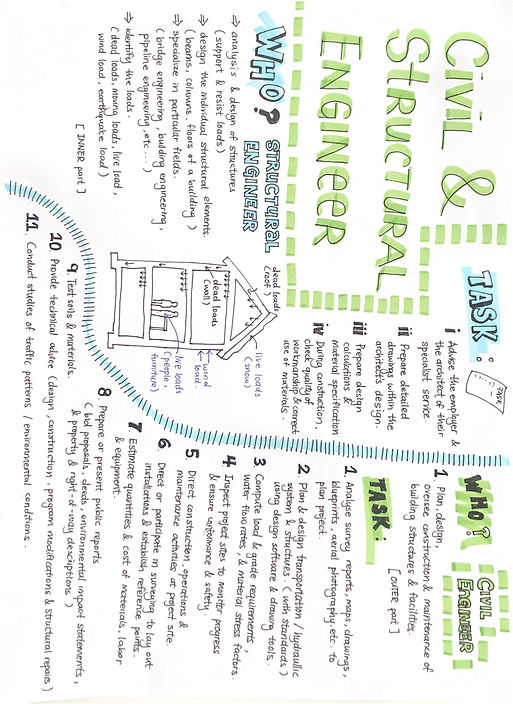 CIVIL &
STRUCTURAL
ENGINEER
WHO? STRUCTURAL
ENGINEER
⇒ analysis & design of structures
( support & resist loads )
⇒ design the individual structural elements.
( beams, columns, floors of a building )
⇒ specialize in particular fields.
( bridge engineering, building engineering,
pipeline engineering, etc... )
⇒ identify the loads.
( dead loads, moving loads, live load,
wind load, earthquake load )
[ INNER part ]
TASK:
Task
i Advise the employer &
the architect of their
specialist service
ii Prepare detailed
drawings within the
architect's design.
iii Prepare design
calculations &
material specification
iv During construction,
check quality of
workmanship & correct
use of materials.
dead loads
(roof)
live loads
(snow)
dead loads
(wall)
wind
load.
live loads
(people,
furniture)
WHO? CIVIL
ENGINEER
1 Plan, design,
oversee construction & maintenance of
building structures & facilities.
[ OUTER part ]
TASK:
1. Analyse survey reports, maps, drawings,
blueprints, aerial photography, etc. to
plan project.
2 Plan & design transportation / hydraulic
system & structures. ( with standards )
using design software & drawing tools.
3 Compute load & grade requirements,
water flow rates, & material stress factors.
4 Inspect project sites to monitor progress
& ensure conformance & safety
5 Direct construction, operations &
maintenance activities at project site
6. Direct or participate in surveying to lay out
installations & establish reference points.
7. Estimate quantities & cost of materials, labor
& equipment.
8 Prepare or present public reports
( bid proposals, deeds, environmental impact statements,
& property & right-of-way descriptions. )
9. Test soils & materials.
10 Provide technical advice (design, construction, program modifications & structural repairs)
11. Conduct studies of traffic patterns / environmental conditions.